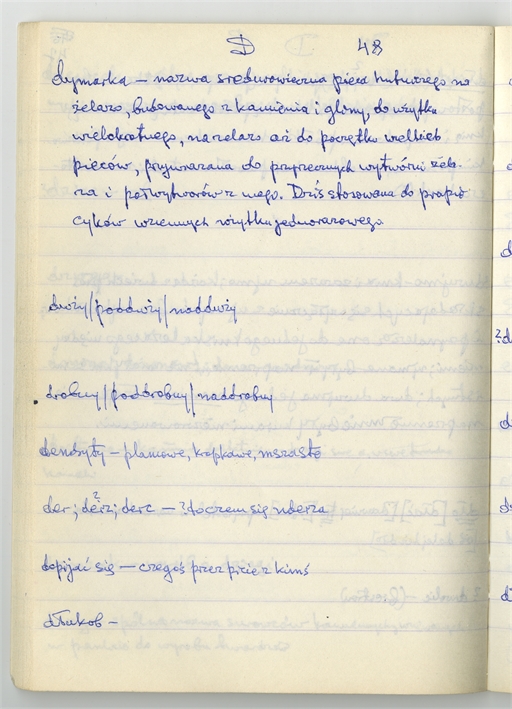 D 48
dymarka – nazwa średniowieczna pieca hutniczego na
żelazo, budowanego z kamienia i gliny do użytku
wielokrotnego, na żelazo aż do początku wielkich
pieców, przywiązana do przyrzecznych wytwórni żela-
za i półwytworów z niego. Dziś stosowana do prapie-
cyków wziemnych użytku jednorazowego
duży/podduży/nadduży
drobny/poddrobny/naddrobny
dendryty – plamowe, kropkowe, mszaste
der; derz; derc – ? do czem się uderza
dopijać się — czegoś przez picie z kimś
dłubok –